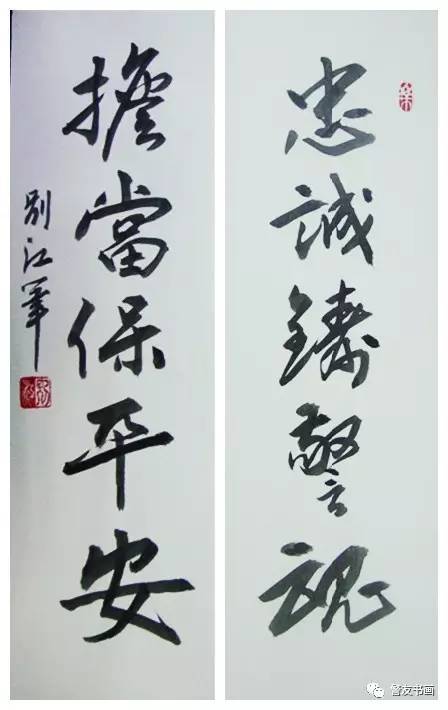 忠誠鑄警魂
擔當保平安
別江筆
警友书画